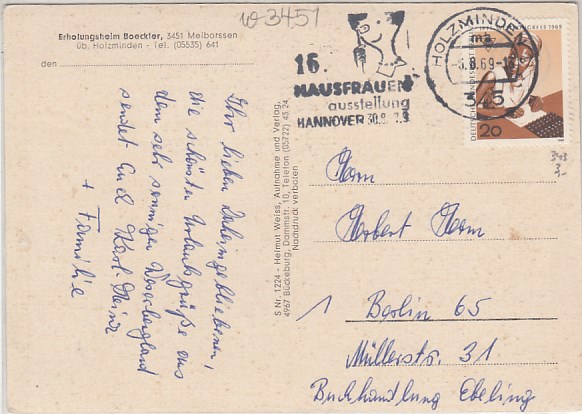 w 3451
Erholungsheim Boeckler, 3451 Meiborssen
üb. Holzminden - Tel. (05535) 641
den
16.
HAUSFRAUEN
ausstellung
HANNOVER 30.8.-7.9.
HOLZMINDEN
ma
.8.69-1
345
DEUTSCHE BUNDESPOST
1969
20
Ihr lieben Daheimgebliebenen,
die schönsten Urlaubsgrüße aus
dem sehr sonnigen Weserbergland
sendet Euch Karl-Heinz
+ Familie
S Nr. 1224 - Helmut Weiss, Aufnahme und Verlag,
4967 Bückeburg, Dammstr. 10, Telefon (05722) 45 24
Nachdruck verboten
Herrn
Herbert Horn
1 Berlin 65
Müllerstr. 31
Buchhandlung Ebeling